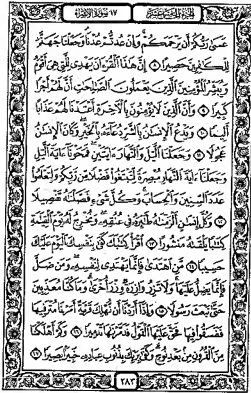 ١٧ سورة الإسراء
عَسَىٰ رَبُّكُمْ أَن يَرْحَمَكُمْ وَإِنْ عُدتُّمْ عُدْنَا وَجَعَلْنَا جَهَنَّمَ
لِلْكَافِرِينَ حَصِيرًا ۝ إِنَّ هَٰذَا الْقُرْآنَ يَهْدِي لِلَّتِي هِيَ أَقْوَمُ
وَيُبَشِّرُ الْمُؤْمِنِينَ الَّذِينَ يَعْمَلُونَ الصَّالِحَاتِ أَنَّ لَهُمْ أَجْرًا
كَبِيرًا ۝ وَأَنَّ الَّذِينَ لَا يُؤْمِنُونَ بِالْآخِرَةِ أَعْتَدْنَا لَهُمْ عَذَابًا
أَلِيمًا ۝ وَيَدْعُ الْإِنسَانُ بِالشَّرِّ دُعَاءَهُ بِالْخَيْرِ وَكَانَ الْإِنسَانُ
عَجُولًا ۝ وَجَعَلْنَا اللَّيْلَ وَالنَّهَارَ آيَتَيْنِ فَمَحَوْنَا آيَةَ اللَّيْلِ
وَجَعَلْنَا آيَةَ النَّهَارِ مُبْصِرَةً لِّتَبْتَغُوا فَضْلًا مِّن رَّبِّكُمْ وَلِتَعْلَمُوا
عَدَدَ السِّنِينَ وَالْحِسَابَ وَكُلَّ شَيْءٍ فَصَّلْنَاهُ تَفْصِيلًا
۝ وَكُلَّ إِنسَانٍ أَلْزَمْنَاهُ طَائِرَهُ فِي عُنُقِهِ وَنُخْرِجُ لَهُ يَوْمَ الْقِيَامَةِ
كِتَابًا يَلْقَاهُ مَنشُورًا ۝ اقْرَأْ كِتَابَكَ كَفَىٰ بِنَفْسِكَ الْيَوْمَ عَلَيْكَ
حَسِيبًا ۝ مَّنِ اهْتَدَىٰ فَإِنَّمَا يَهْتَدِي لِنَفْسِهِ وَمَن ضَلَّ
فَإِنَّمَا يَضِلُّ عَلَيْهَا وَلَا تَزِرُ وَازِرَةٌ وِزْرَ أُخْرَىٰ وَمَا كُنَّا مُعَذِّبِينَ
حَتَّىٰ نَبْعَثَ رَسُولًا ۝ وَإِذَا أَرَدْنَا أَن نُّهْلِكَ قَرْيَةً أَمَرْنَا مُتْرَفِيهَا
فَفَسَقُوا فِيهَا فَحَقَّ عَلَيْهَا الْقَوْلُ فَدَمَّرْنَاهَا تَدْمِيرًا ۝ وَكَمْ أَهْلَكْنَا
مِنَ الْقُرُونِ مِن بَعْدِ نُوحٍ وَكَفَىٰ بِرَبِّكَ بِذُنُوبِ عِبَادِهِ خَبِيرًا بَصِيرًا ۝
٢٨٣